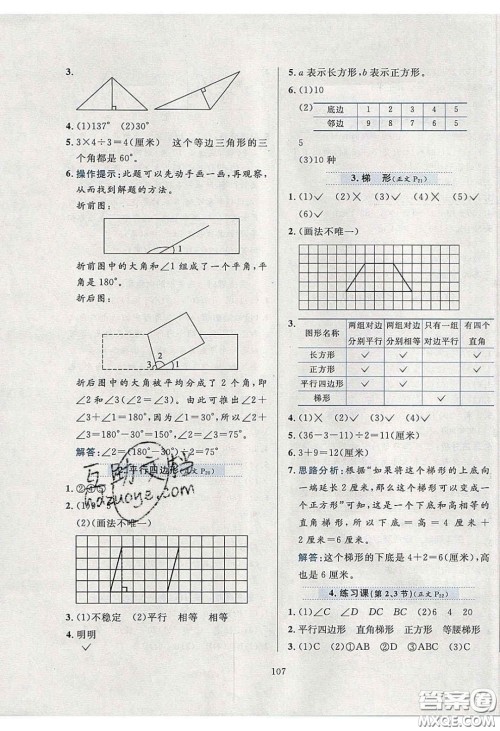 3.
4. (1)137° (2)30°
5. 3×4÷3=4(厘米) 这个等边三角形的三
个角都是60°。
6. 操作提示:此题可以先动手画一画,再观察,
从而找到解题的方法。
折前图:
1
折前图中的大角和∠1组成了一个平角,平
角是180°。
折后图:
2
3
1
折后图中的大角被平均分成了2个角,即
∠2和∠3(∠2=∠3)。由此可推出∠1+
∠2+∠3=180°。所以,∠2=∠3=
(180°-30°)÷2=75°。
解答:∠2=(180°-30°)÷2=75°
平行四边形(正文P20)
(2)(画法不唯一)
3. (1)不稳定 (2)平行 相等 相等
4. 明明
✓
5. a表示长方形,b表示正方形。
6. (1)10
(2)
底边 1 2 3 4 5
邻边 9 8 7 6 5
5
(3)10种
3. 梯 形(正文P21)
1. (1)✓ (2)✕ (3)✕ (4)✓ (5)✓
(6)✓
2. (画法不唯一)
3.
图形名称 两组对边分别平行 两组对边分别相等 只有一组对边平行 有四个直角
长方形 ✓ ✓ ✓
正方形 ✓ ✓ ✓
平行四边形 ✓ ✓
梯形 ✓
5. (1)✕ (2)✓ (3)✓
6. (36-3-11)÷2=11(厘米)
7. 思路分析:根据“如果将这个梯形的上底向
一端延长4厘米,则这个梯形可以变成一个
正方形”可知,这是一个下底和高相等的
直角梯形,所以下底=高=(16-4)÷
2=6厘米。
解答:这个梯形的下底是4+2=6(厘米)。
4. 练习课(第2、3节)(正文P22)
1. (1)∠C ∠D DC BC (2)6 4 20
2. 平行四边形 直角梯形 正方形 等腰梯形
3. (1)C (2)①AB ②CD (3)D
107